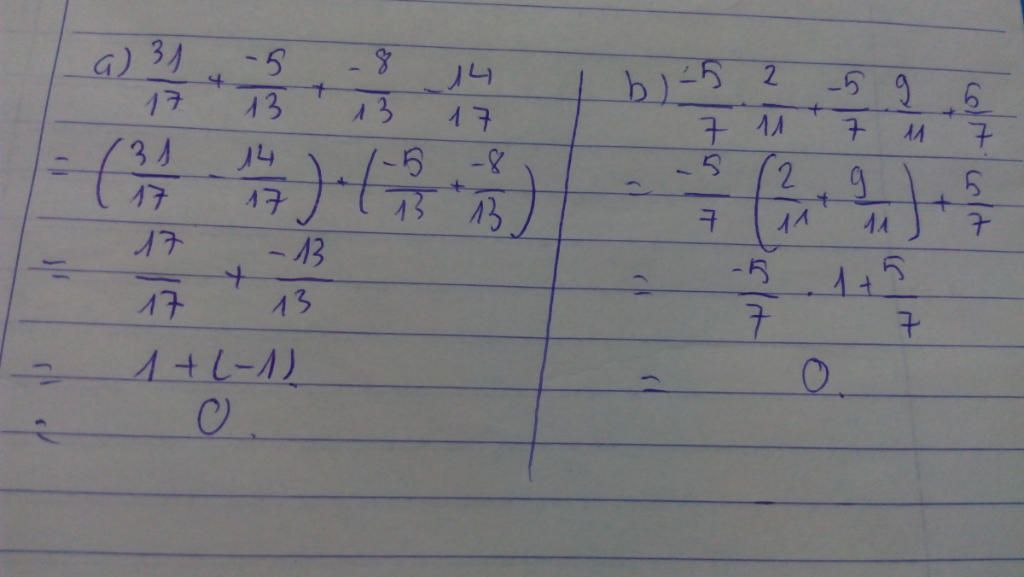 a) 31/17 + -5/13 + -8/13 - 14/17
= (31/17 - 14/17) + (-5/13 + -8/13)
= 17/17 + -13/13
= 1 + (-1)
= 0.
b) -5/7 . 2/11 + -5/7 . 9/11 + 5/7
= -5/7 (2/11 + 9/11) + 5/7
= -5/7 . 1 + 5/7
= 0.